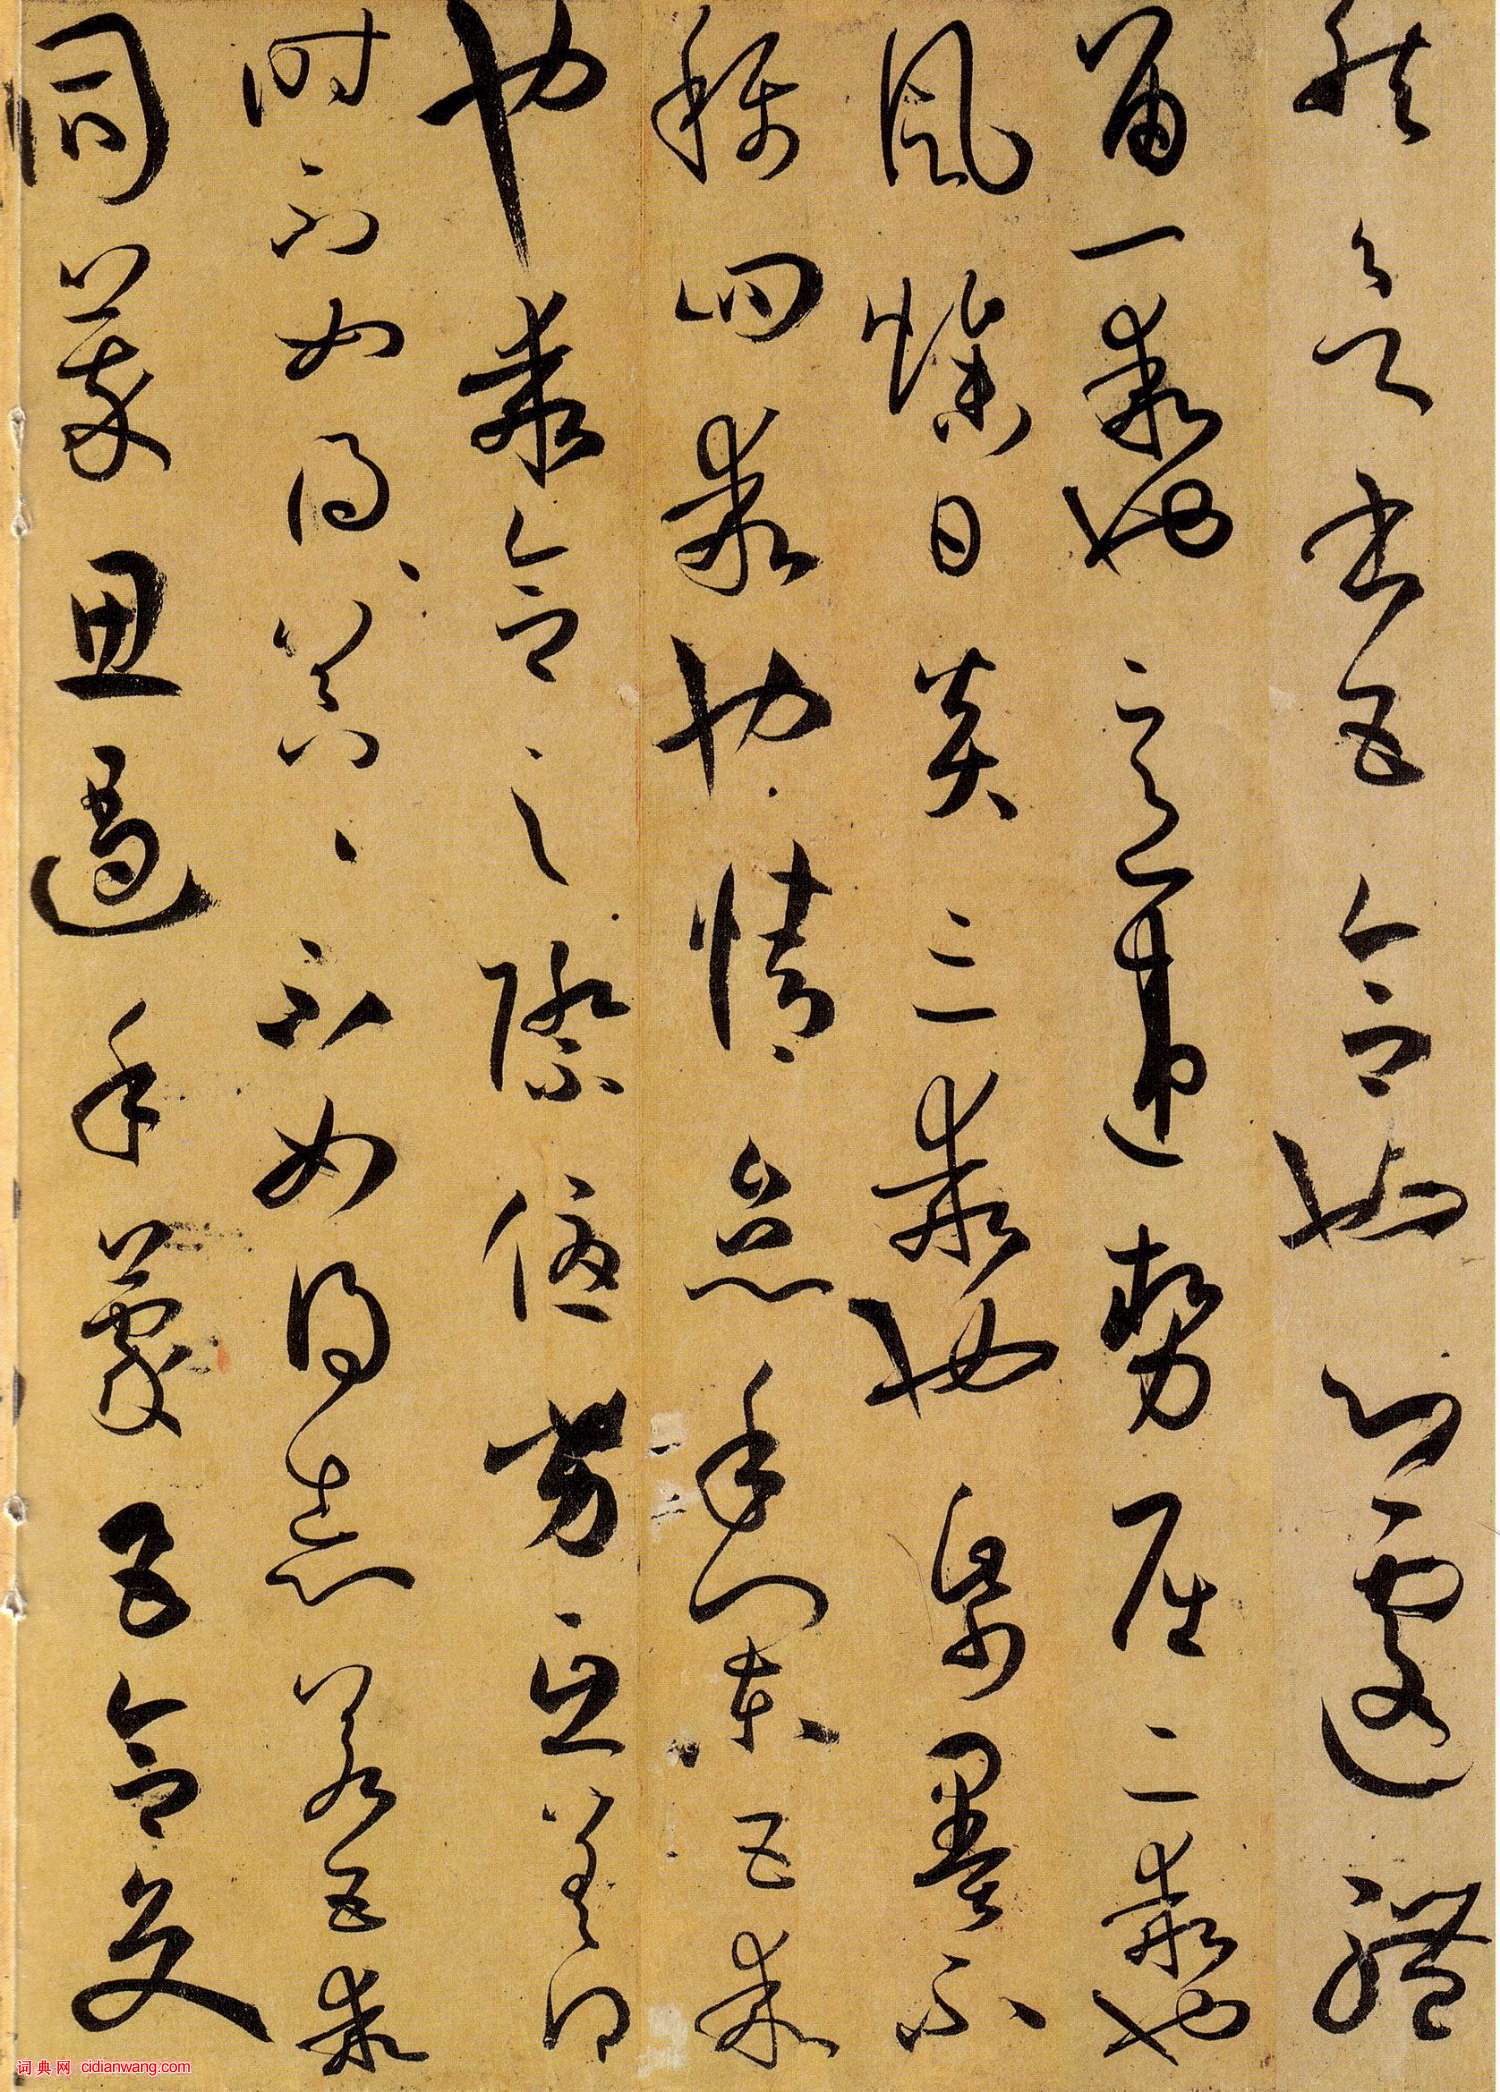 然欲書五合也心遽體
留一乖也意違勢屈二乖也
風燥日炎三乖也帋墨不
稱四乖也情怠手闌五乖
也乖合之際優劣互差得
時不如得〻器〻不如得志若五乖
同萃思遏手蒙五合交
词典网 cidianwang.com